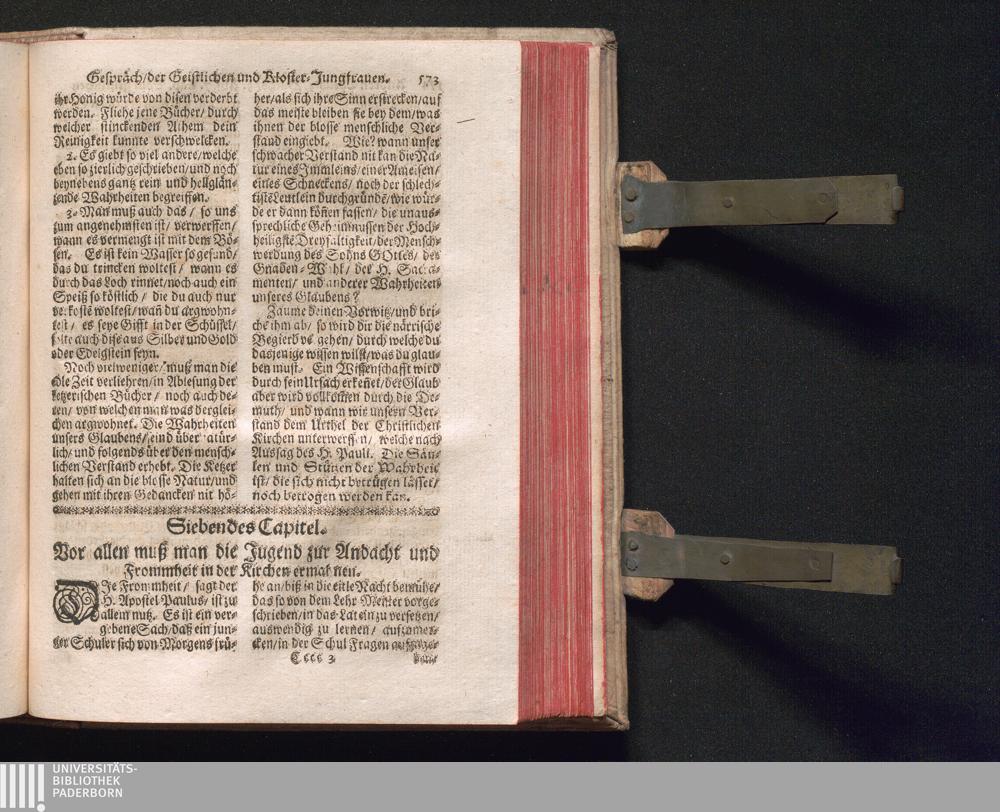 Gespräch/der Geistlichen und Kloster-Jungfrauen. 573
ihr Honig würde von disen verderbt
werden. Fliehe jene Bücher/ durch
welcher stinckenden Athem dein
Reinigkeit kunnte verschwelcken.
2. Es giebt so viel andere/welche
eben so zierlich geschrieben/und noch
beynebens gantz rein und hellglän-
zende Wahrheiten begreiffen.
3. Man muß auch das / so uns
zum angenehmsten ist/ verwerffen/
wann es vermengt ist mit dem Bö-
sen. Es ist kein Wasser so gesund/
das du trincken woltest / wann es
durch das Loch rinnet/noch auch ein
Speiß so köstlich / die du auch nur
verkostē woltest/wañ du argwohn-
test / es seye Gifft in der Schüssel/
solte auch dise aus Silber und Gold
oder Edelgstein seyn.
Noch viel weniger/ muß man die
edle Zeit verliehren/in Ablesung der
ketzerischen Bücher / noch auch de-
ren/ von welchen man was derglei-
chen argwohnet. Die Wahrheiten
unsers Glaubens/seind über natür-
lich/ und folgends über den mensch-
lichen Verstand erhebt. Die Ketzer
halten sich an die blosse Natur/und
gehen mit ihren Gedancken nit hö-
her/als sich ihre Sinn erstrecken/auf
das meiste bleiben sie bey dem/was
ihnen der blosse menschliche Ver-
stand eingiebt. Wie? wann unser
schwacher Verstand nit kan die Na-
tur eines Immleins/einer Ameisen/
eines Schneckens/ noch der schlech-
tiste Leutlein durchgründē/wie wür-
de er dann köñen fassen/ die unaus-
sprechliche Geheimnussen der Hoch-
heiligstē Dreyfaltigkeit/der Mensch-
werdung des Sohns GOttes/ des
Gnaden-Wahl/ des H. Sacra-
menten/ und anderer Wahrheiten
unseres Glaubens?
Zäume deinen Vorwitz/und bri-
che ihm ab/ so wird dir die närrische
Begierd vergehen/ durch welche du
dasjenige wissen wilst/was du glau-
ben must. Ein Wissenschafft wird
durch sein Ursach erkeñet/der Glaub
aber wird vollkommen durch die De-
muth/ und wann wir unsern Ver-
stand dem Urthel der Christlichen
Kirchen unterwerffen/ welche nach
Aussag des H. Pauli. Die Säu-
len und Stützen der Wahrheit
ist/ die sich nicht betrügen lässet/
noch betrogen werden kan.
Siebendes Capitel.
Vor allen muß man die Jugend zur Andacht und
Frommheit in der Kirchen ermahnen.
DIe Frommheit / sagt der
H. Apostel Paulus/ ist zu
allem nutz. Es ist ein ver-
gebene Sach/daß ein jun-
ger Schuler sich von Morgens frü-
he an/biß in die eitle Nacht bemühe/
das so von dem Lehr-Meister vorge-
schrieben/in das Latein zu versetzen/
auswendig zu lernen/ aufzumer-
cken/in der Schul Fragen
Cccc 3
UNIVERSITÄTS-
BIBLIOTHEK
PADERBORN